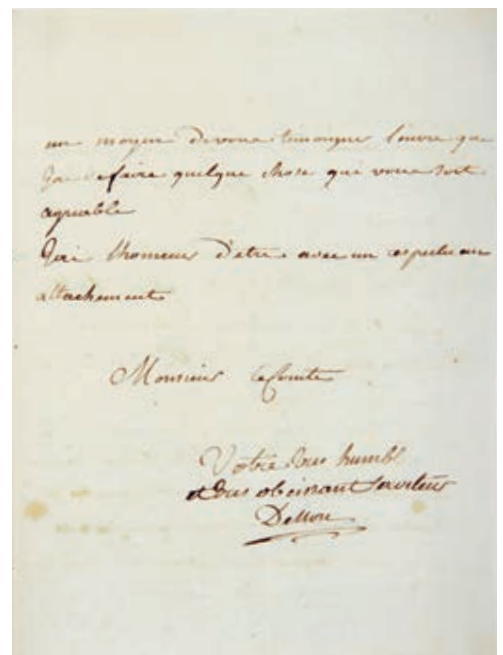 un moyen de vous temoigner l'envie que
j'ai de faire quelque chose qui vous soit
agreable
J'ai l'honneur d'etre avec un respectueux
attachement
Monsieur le Comte
Votre tres humbl
et tres obeissant serviteur
Denon